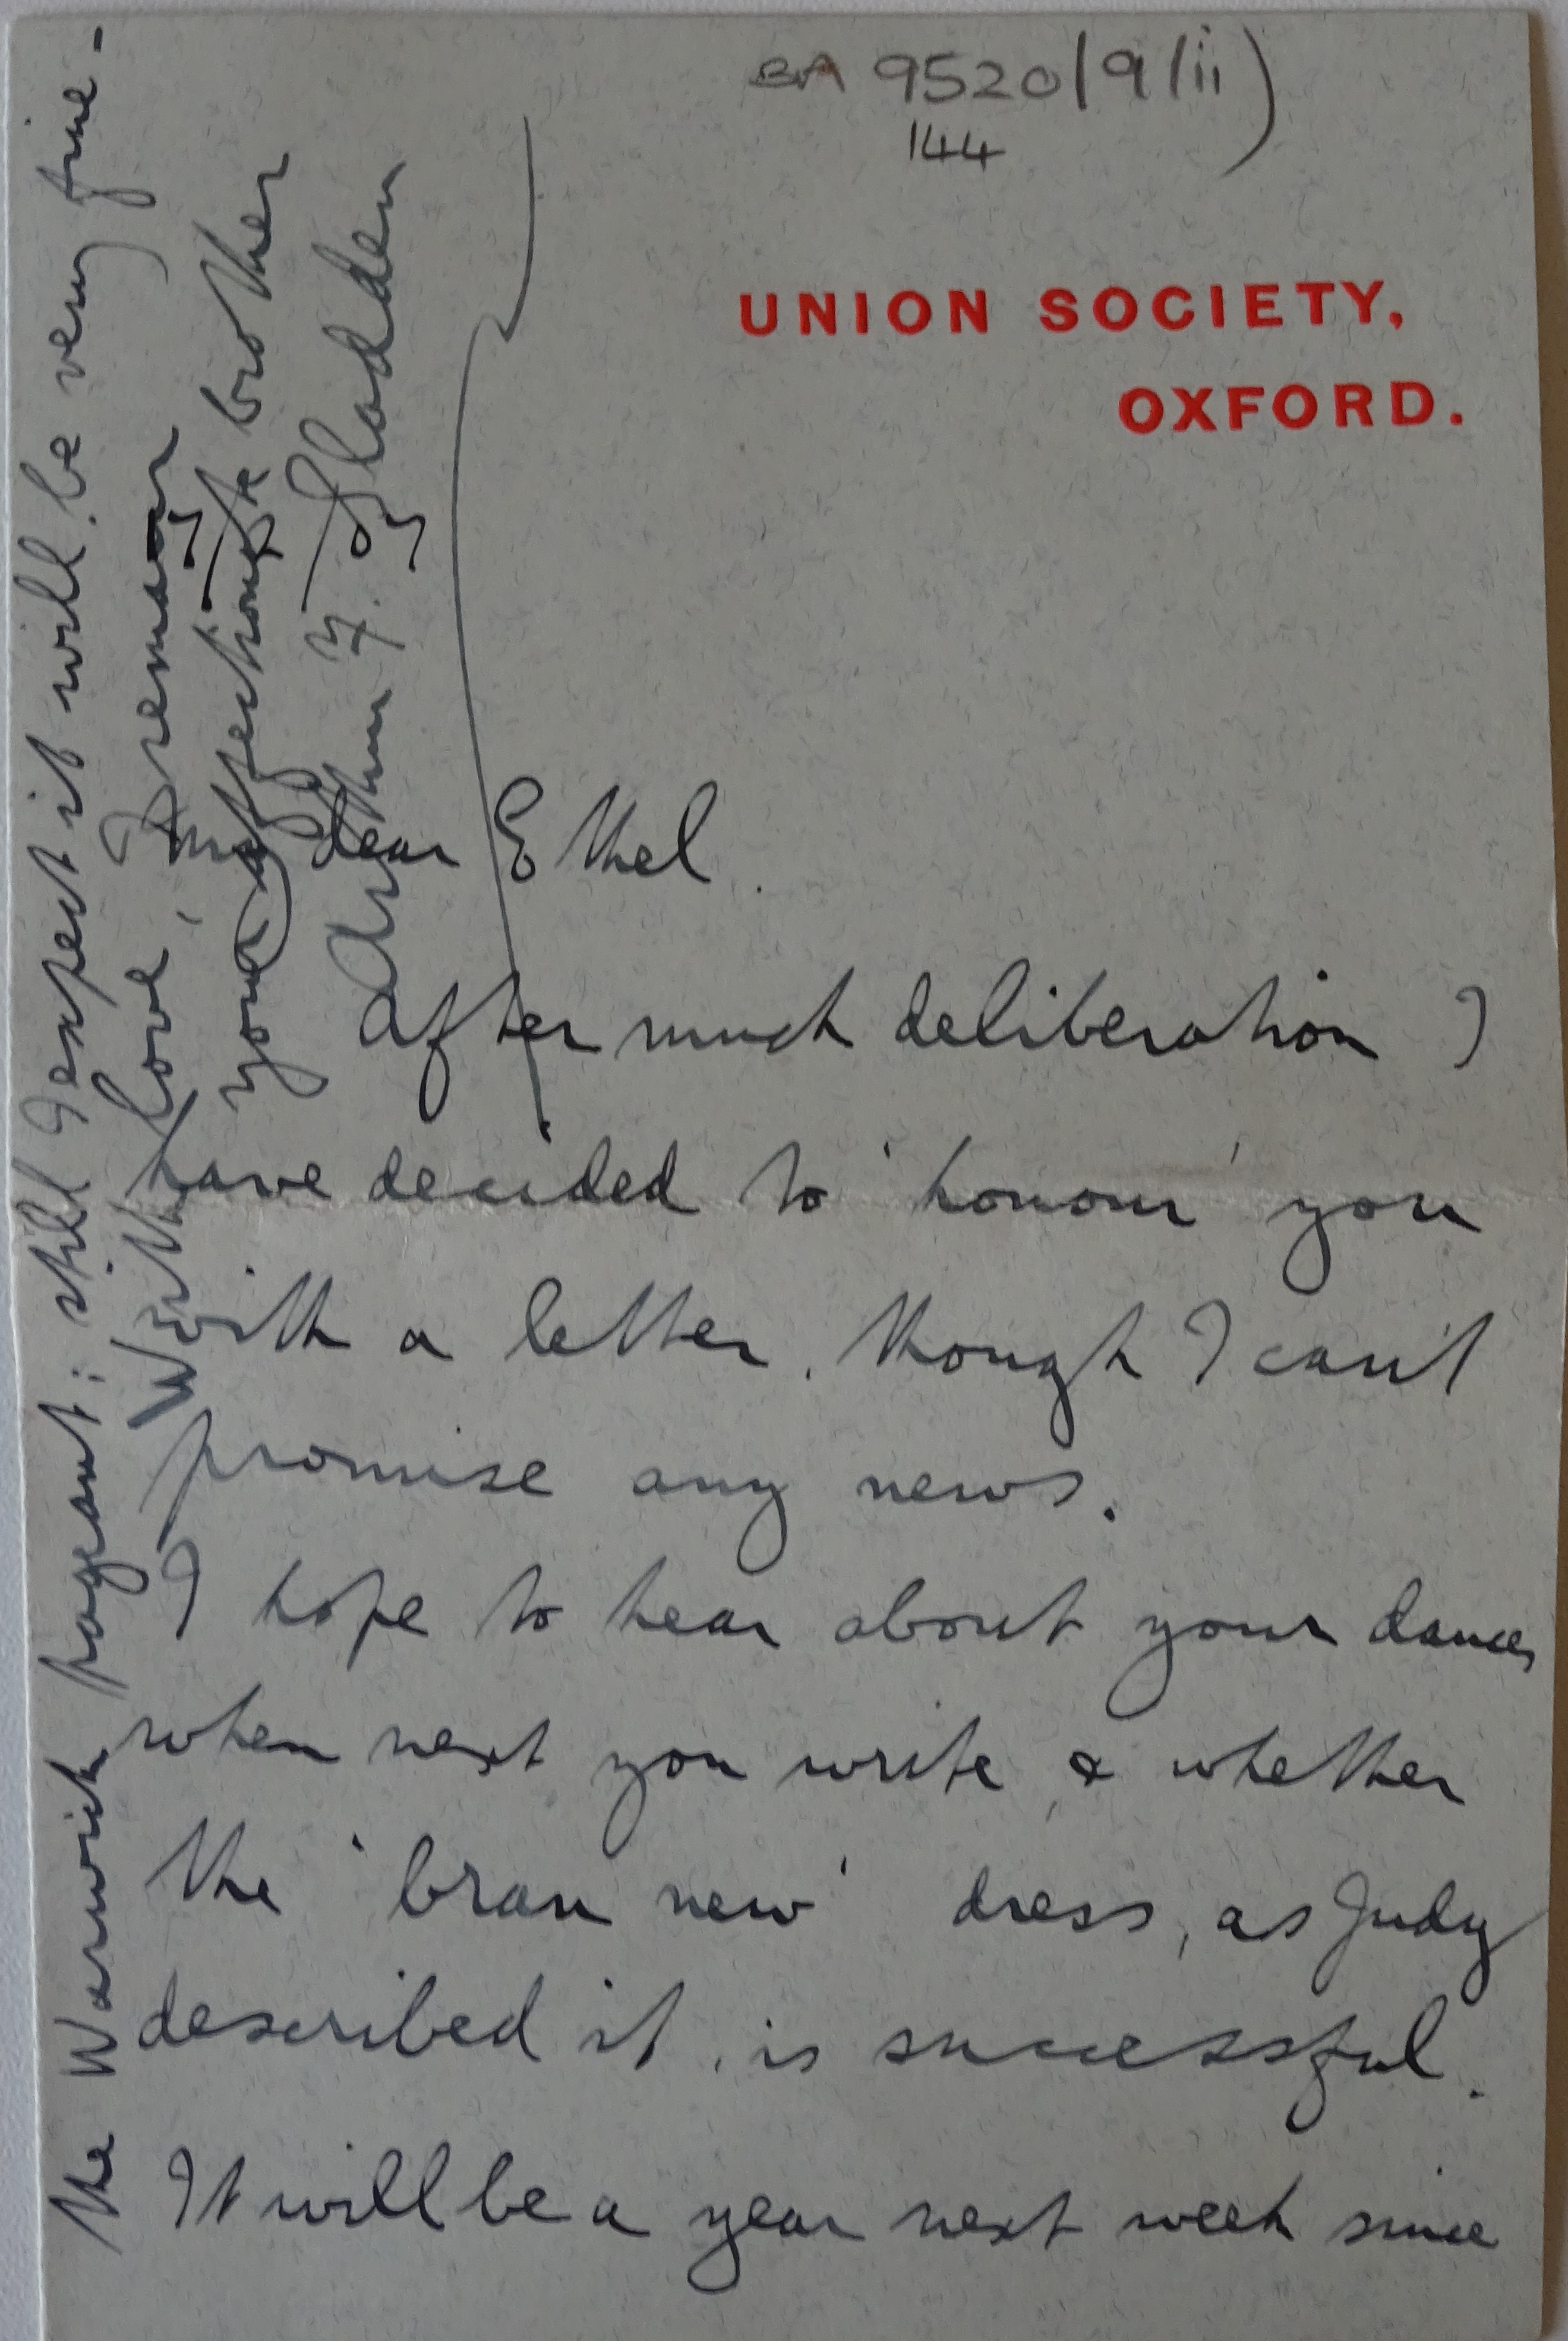 BA 9520/9/ii)
144
UNION SOCIETY,
OXFORD.
My dear Ethel.
After much deliberation I
have decided to 'honour' you
with a letter, though I can't
promise any news.
I hope to hear about your dances
when next you write, & whether
the 'bran new' dress, as Judy
described it, is successful.
It will be a year next week since
the Warwick pageant: still I expect it will be very fine -
With love, I remain
your affectionate brother
Arthur F. Gladden